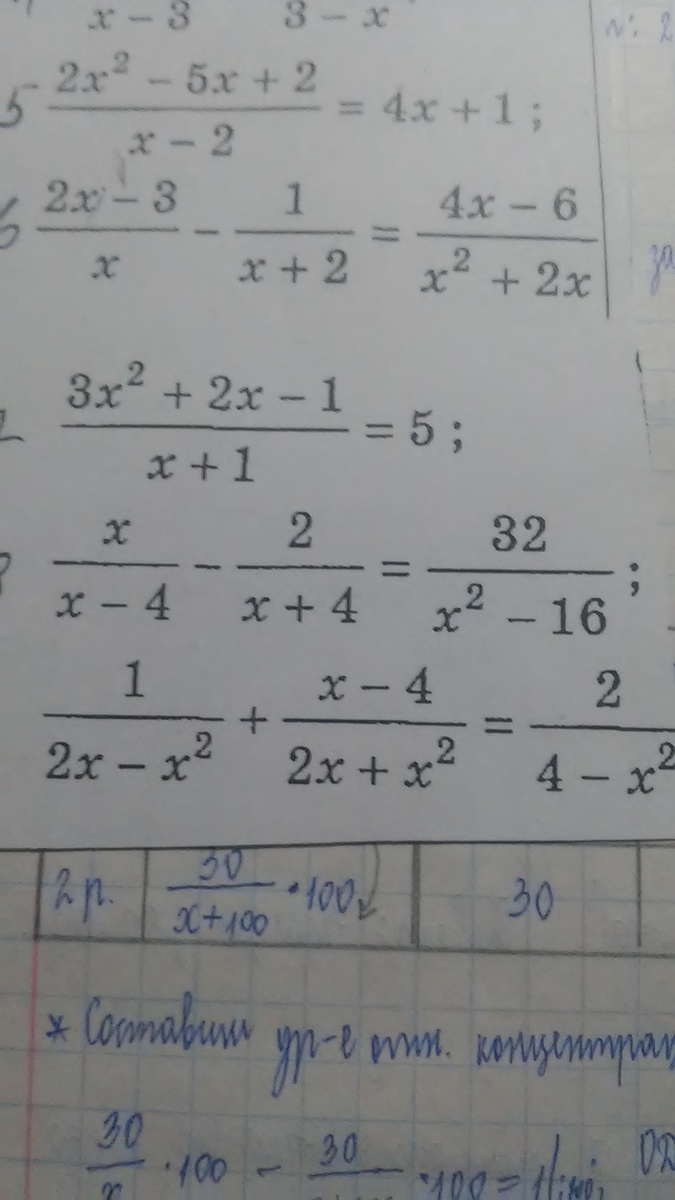 x − 3    3 − x
5 (2x² − 5x + 2)/(x − 2) = 4x + 1 ;
6 (2x − 3)/x − 1/(x + 2) = (4x − 6)/(x² + 2x)
(3x² + 2x − 1)/(x + 1) = 5 ;
x/(x − 4) − 2/(x + 4) = 32/(x² − 16) ;
1/(2x − x²) + (x − 4)/(2x + x²) = 2/(4 − x²
2 р. 30/(x+100) · 100 30
* Составим ур-е отн. концентрац
30/x · 100 − 30 · 100 = 1